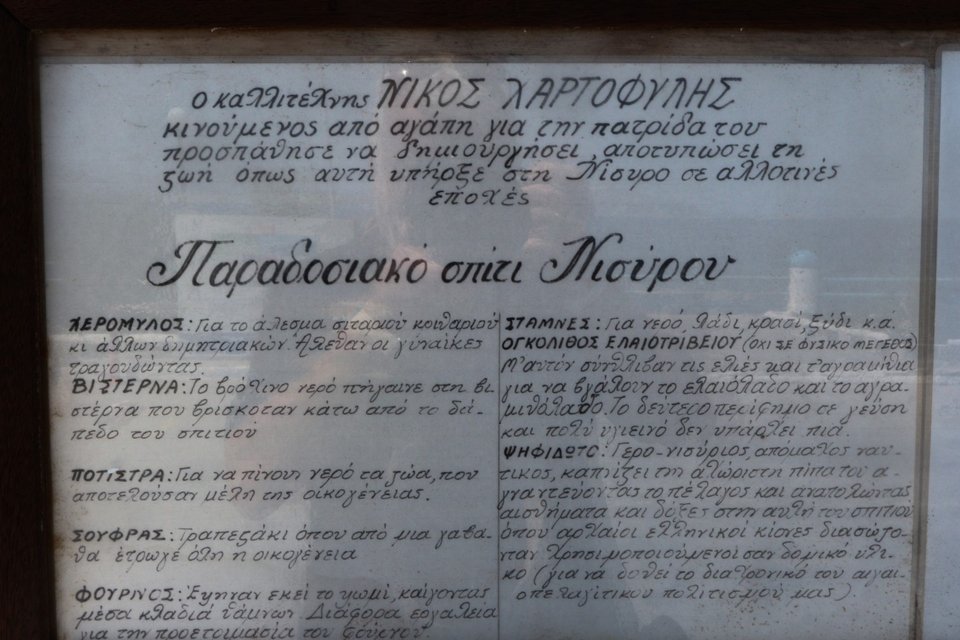 ο καλλιτέχνης ΝΙΚΟΣ ΧΑΡΤΟΦΥΛΗΣ
κινούμενος από αγάπη για την πατρίδα του
προσπάθησε να δημιουργήσει, αποτυπώσει τη
ζωή όπως αυτή υπήρξε στη Νίσυρο σε αλλοτινές
εποχές
Παραδοσιακό σπίτι Νισύρου
ΧΕΡΟΜΥΛΟΣ: Για το άλεσμα σιταριού κριθαριού
κι άλλων δημητριακών. Άλεθαν οι γυναίκες
τραγουδώντας.
ΒΙΣΤΕΡΝΑ: Το βρόχινο νερό πήγαινε στη βι-
στέρνα που βρίσκοταν κάτω από το δά-
πεδο του σπιτιού
ΠΟΤΙΣΤΡΑ: Για να πίνουν νερό τα ζώα, που
αποτελούσαν μέλη της οικογένειας.
ΣΟΥΦΡΑΣ: Τραπεζάκι όπου από μια γαβά-
θα έτρωγε όλη η οικογένεια
ΦΟΥΡΝΟΣ: Έψηναν εκεί το ψωμί, καίγοντας
μέσα κλαδιά θάμνων. Διάφορα εργαλεία
για την προετοιμασία του φούρνου.
ΣΤΑΜΝΕΣ: Για νερό, λάδι, κρασί, ξύδι κ.ά.
ΟΓΚΟΛΙΘΟΣ ΕΛΑΙΟΤΡΙΒΕΙΟΥ (ΟΧΙ ΣΕ ΦΥΣΙΚΟ ΜΕΓΕΘΟΣ)
Μ'αυτόν σύνθλιβαν τις ελιές και τ'αγραμύθια
για να βγάλουν το ελαιόλαδο και το αγρα-
μιθόλαδο. Το δεύτερο περίφημο σε γεύση
και πολύ υγιεινό δεν υπάρχει πιά.
ΨΗΦΙΔΩΤΟ: Γερο-νισύριος, απόμαχος ναυ-
τικός, καπνίζει την αχώριστη πίπα του α-
γναντεύοντας το πέλαγος και ανατολώντας
αισθήματα και δόξες στην αυλή του σπιτιού
όπου αρχαίοι ελληνικοί κίονες διασώζο-
νταν χρησιμοποιούμενοι σαν δομικό υλι-
κο (για να δοθεί το διαχρονικό του αιγαι-
οπελαγίτικου πολιτισμού μας).